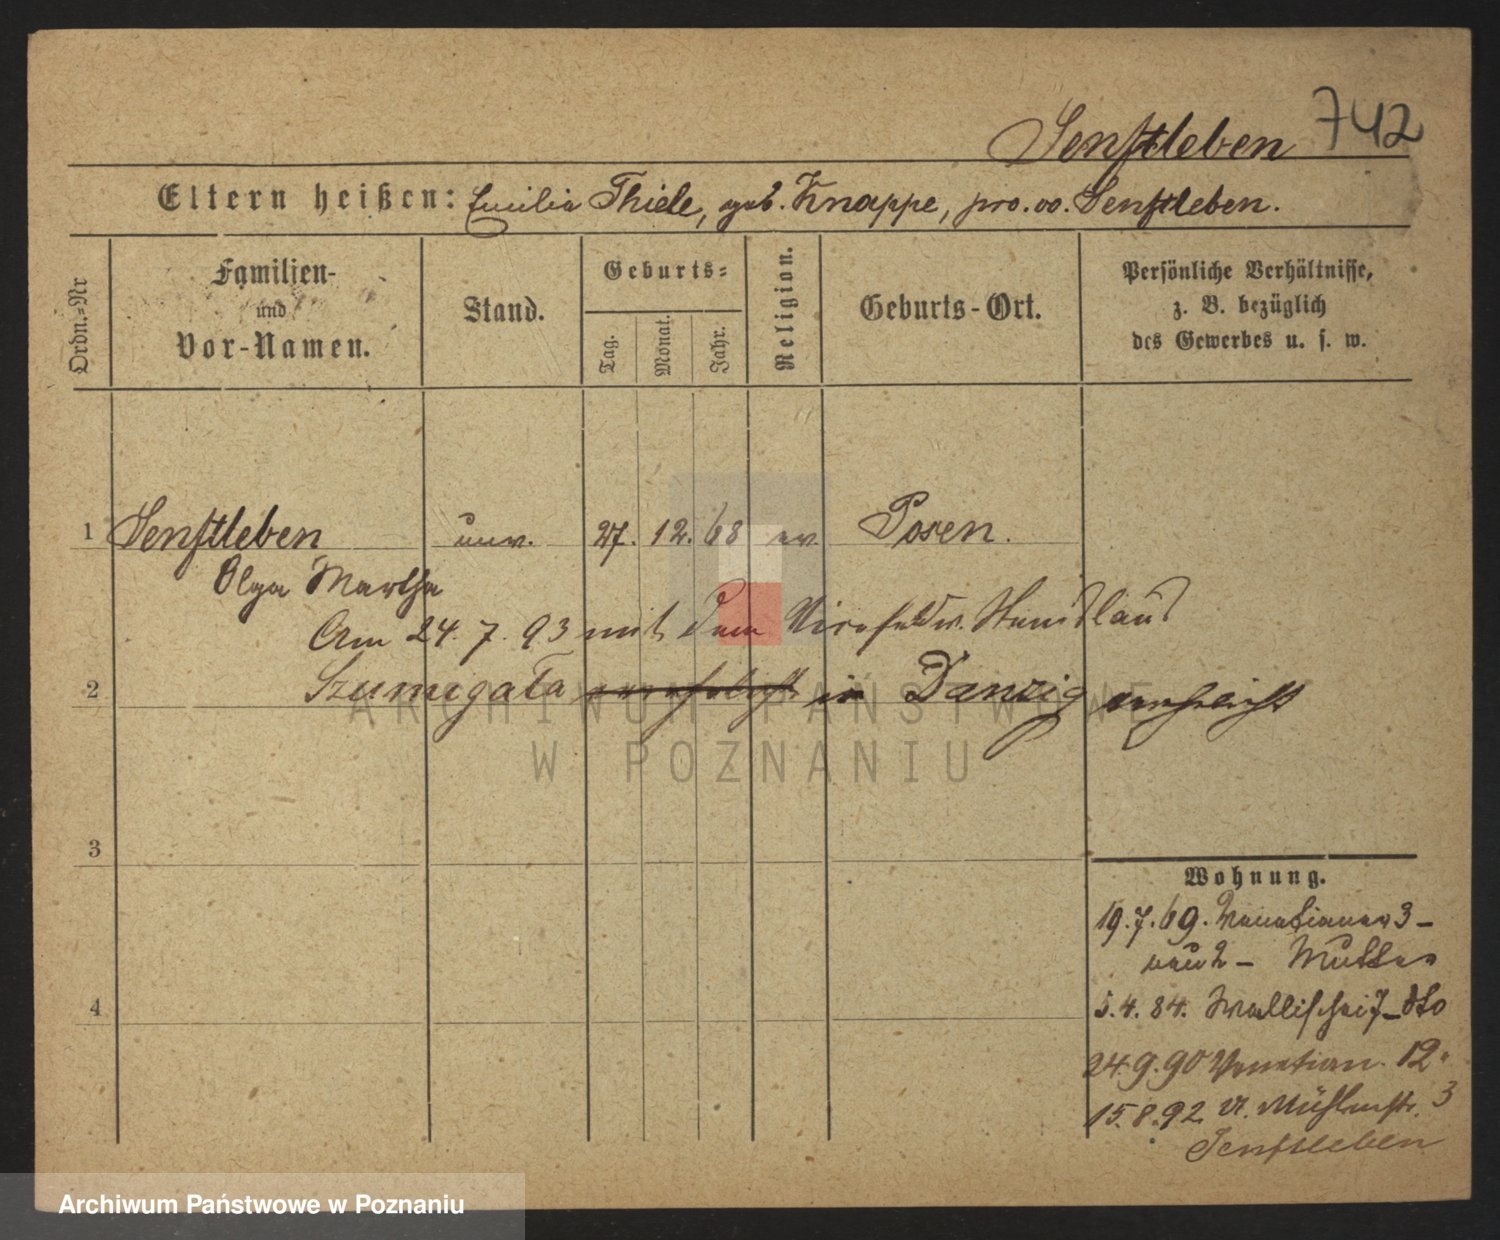 Senftleben 742
Eltern heißen: Emilia Thiele, geb. Knappe, pro. vo. Senftleben.
Ordn.-Nr
Familien-
und
Vor-Namen.
Stand.
Geburts-
Tag.
Monat.
Jahr.
Religion.
Geburts-Ort.
Persönliche Verhältnisse,
z. B. bezüglich
des Gewerbes u. s. w.
1 Senftleben unv. 27. 12. 68 ev. Posen.
Olga Martha
Am 24. 7. 93 mit dem
2 Szumigała in Danzig verehelicht
ARCHIWUM PAŃSTWOWE
W POZNANIU
3
Wohnung.
19.7.69. Venetianer 3 -
Mutter
4
5.4.84. Wallischei 7 - dto
24.9.90 Venetian. 12.
15.8.92 Mühlenstr. 3
Senftleben
Archiwum Państwowe w Poznaniu